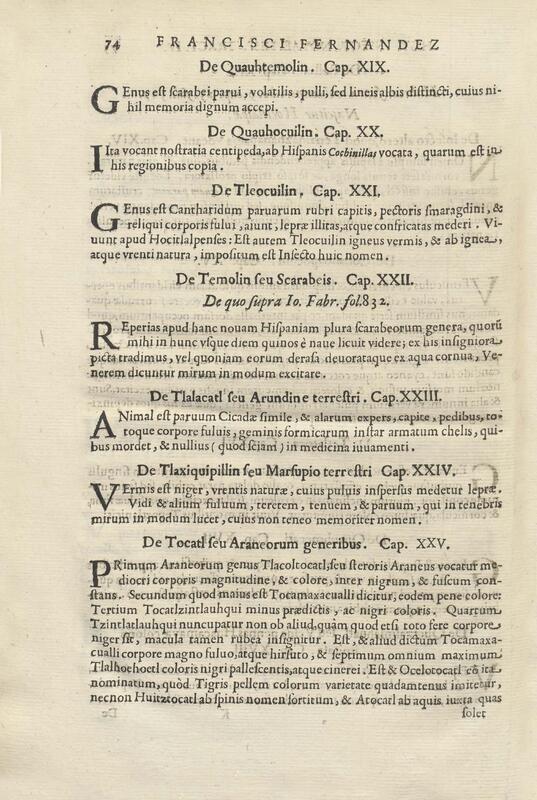 74 FRANCISCI FERNANDEZ
De Quauhtemolin. Cap. XIX.
GEnus est scarabei parui, volatilis, pulli, sed lineis albis distincti, cuius ni-
hil memoria dignum accepi.
De Quauhocuilin. Cap. XX.
IIta vocant nostratia centipeda, ab Hispanis Cochinillas vocata, quarum est in
his regionibus copia.
De Tleocuilin. Cap. XXI.
GEnus est Cantharidum paruarum rubri capitis, pectoris smaragdini, &
reliqui corporis fului, aiunt, lepræ illitas, atque confricatas mederi. Vi-
uunt apud Hocitlalpenses: Est autem Tleocuilin igneus vermis, & ab ignea,
atque vrenti natura, impositum est Insecto huic nomen.
De Temolin seu Scarabeis. Cap. XXII.
De quo supra Io. Fabr. fol. 832.
REperias apud hanc nouam Hispaniam plura scarabeorum genera, quorũ
mihi in hunc vsque diem quinos è naue licuit videre; ex his insigniora
picta tradimus, vel quoniam eorum derasa deuorataque ex aqua cornua, Ve-
nerem dicuntur mirum in modum excitare.
De Tlalacatl seu Arundine terrestri. Cap. XXIII.
ANimal est paruum Cicadæ simile, & alarum expers, capite, pedibus, to-
toque corpore fuluis, geminis formicarum instar armatum chelis, qui-
bus mordet, & nullius (quod sciam) in medicina iuuamenti.
De Tlaxiquipillin seu Marsupio terrestri Cap. XXIV.
VErmis est niger, vrentis naturæ, cuius puluis inspersus medetur lepræ.
Vidi & alium fuluum, teretem, tenuem, & paruum, qui in tenebris
mirum in modum lucet, cuius non teneo memoriter nomen.
De Tocatl seu Araneorum generibus. Cap. XXV.
PRimum Araneorum genus Tlacoltocatl, seu steroris Araneus vocatur me-
diocri corporis magnitudine, & colore, inter nigrum, & fuscum con-
stans. Secundum quod maius est Tocamaxacualli dicitur, eodem pene colore:
Tertium Tocatlzintlauhqui minus prædictis, ac nigri coloris. Quartum
Tzintlatlauhqui nuncupatur non ob aliud, quàm quod etsi toto fere corpore
niger sit, macula tamen rubea insignitur. Est, & aliud dictum Tocamaxa-
cualli corpore magno fuluo, atque hirsuto, & septimum omnium maximum
Tlalhoehoetl coloris nigri pallescentis, atque cinerei. Est & Ocelotocatl cõ ita
nominatum, quòd Tigris pellem colorum varietate quadamtenus imitetur,
necnon Huitztocatl ab spinis nomen sortitum, & Atocatl ab aquis iuxta quas
solet